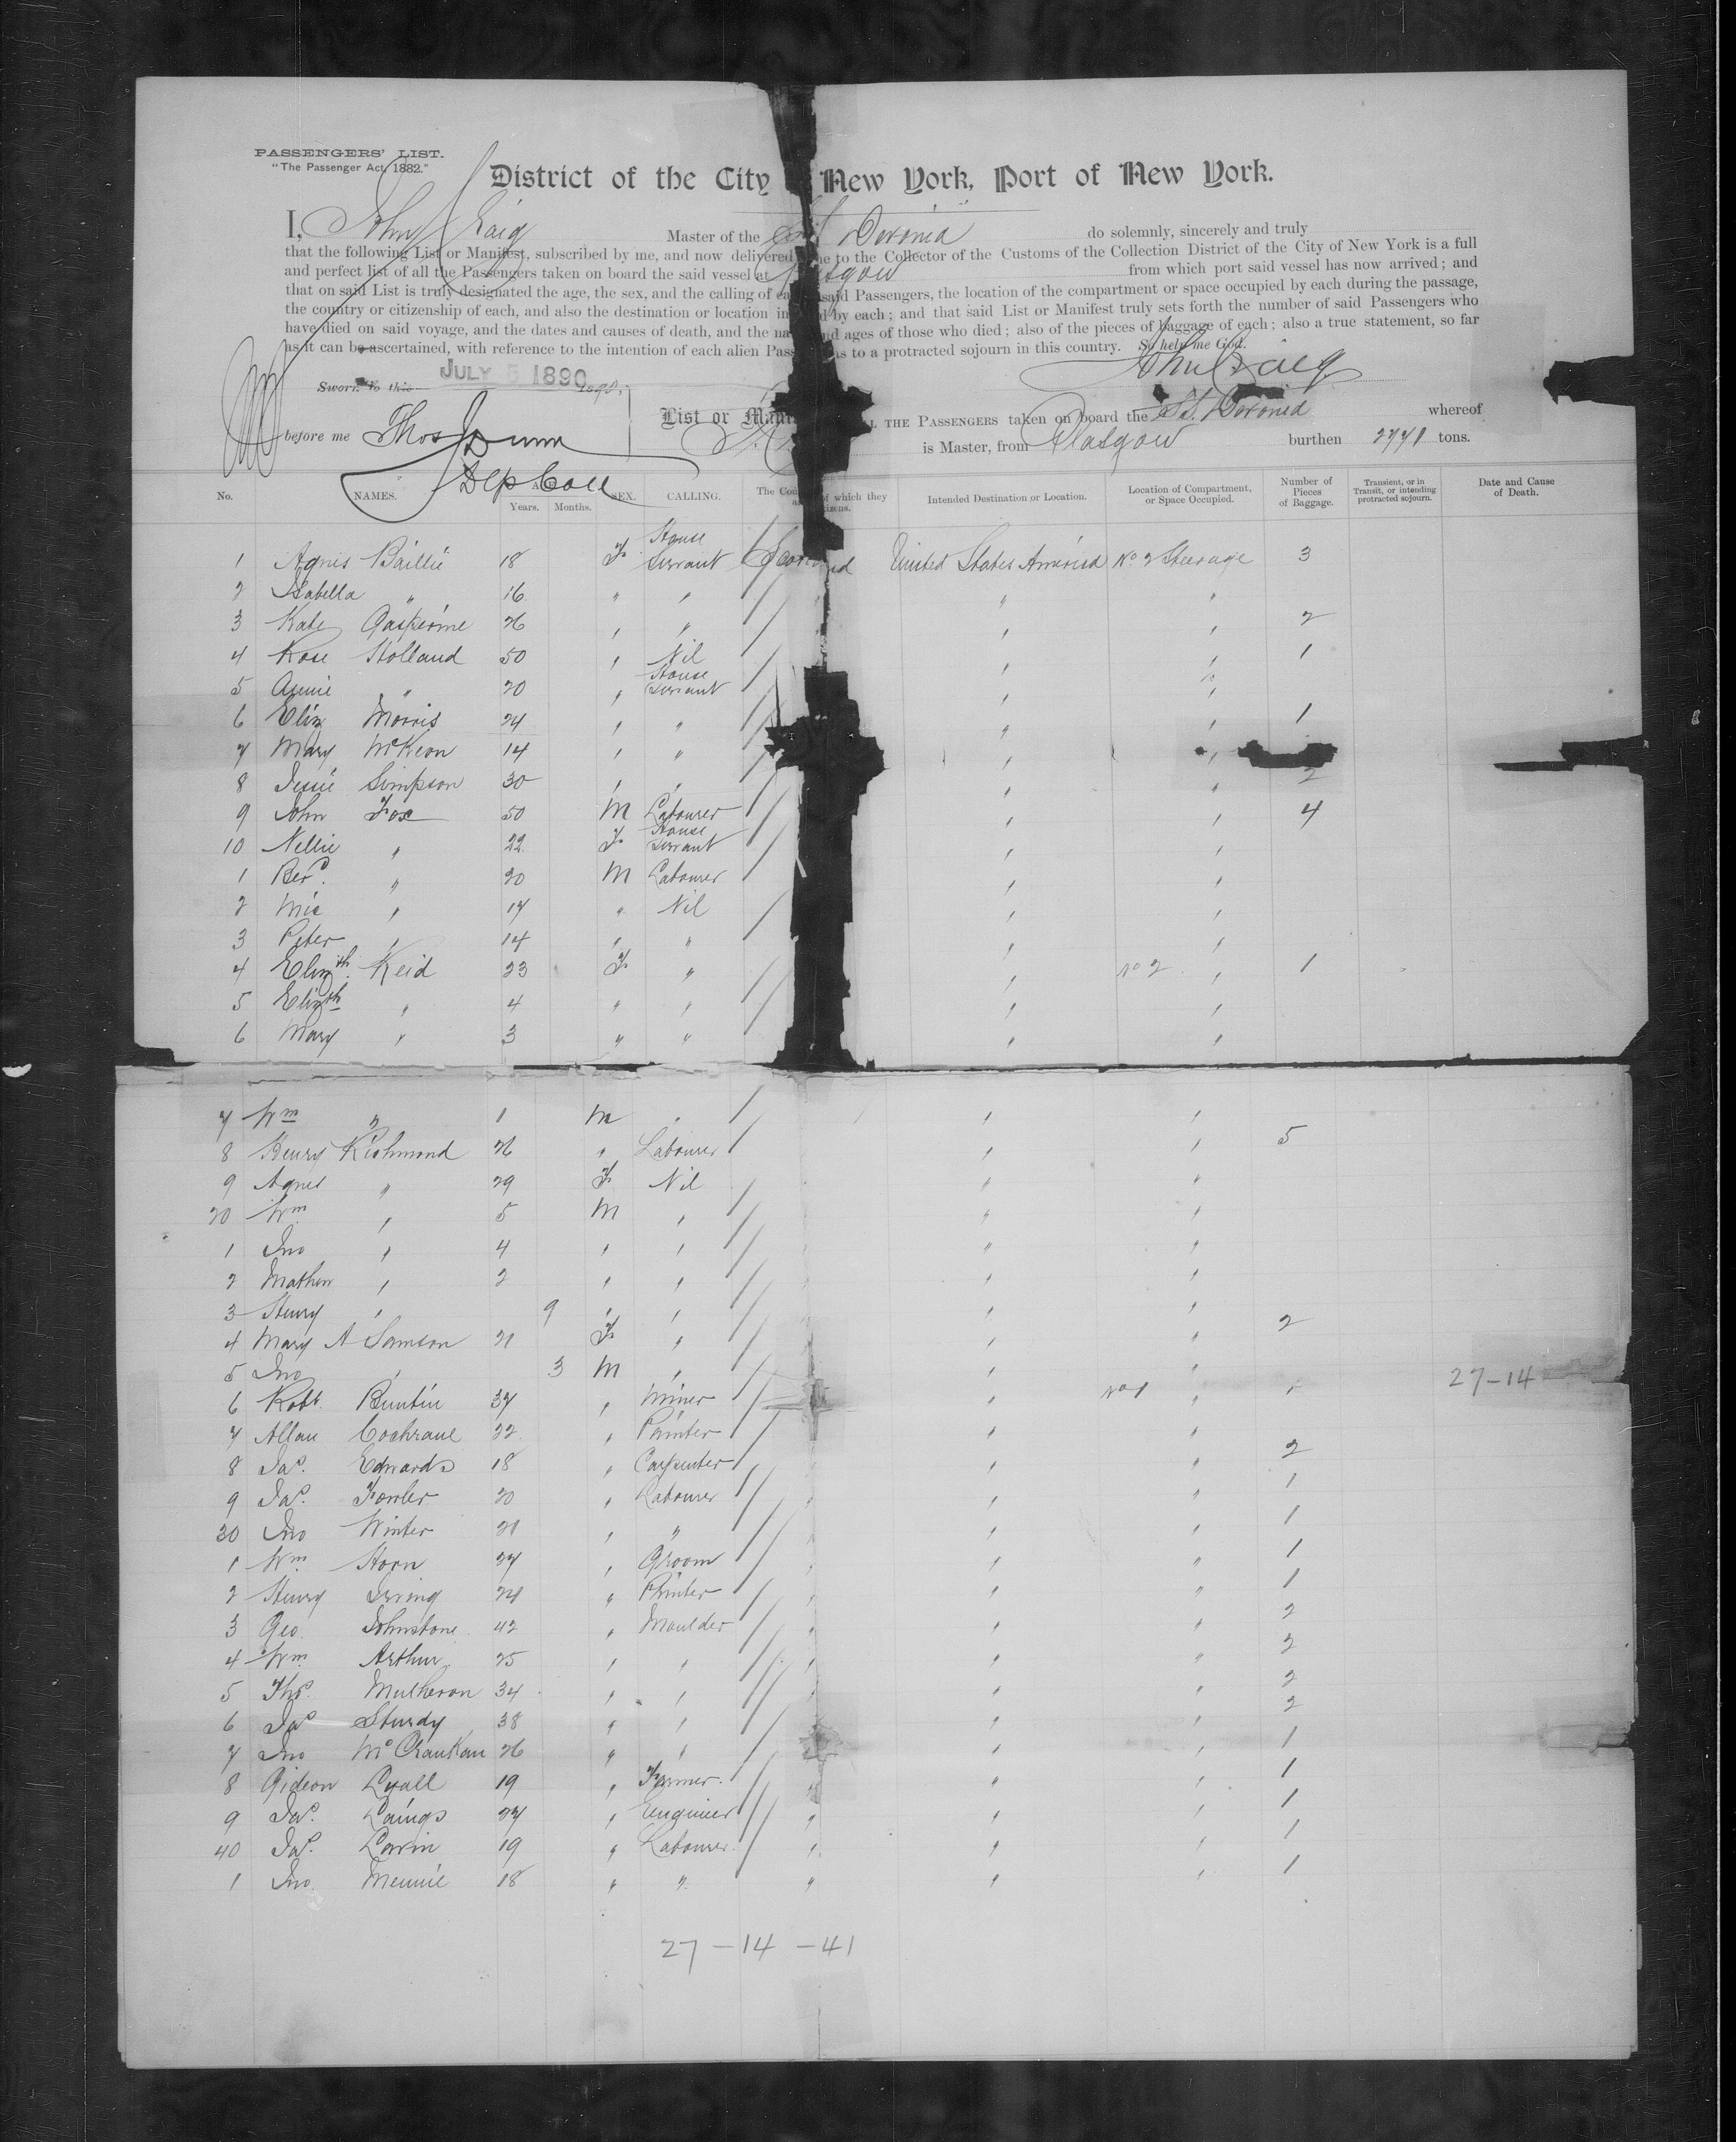 PASSENGERS' LIST.
"The Passenger Act, 1882."
District of the City New York, Port of New York.
I, John Craig Master of the Devonia do solemnly, sincerely and truly
that the following List or Manifest, subscribed by me, and now delivered me to the Collector of the Customs of the Collection District of the City of New York is a full
and perfect list of all the Passengers taken on board the said vessel at Glasgow from which port said vessel has now arrived; and
that on said List is truly designated the age, the sex, and the calling of said Passengers, the location of the compartment or space occupied by each during the passage,
the country or citizenship of each, and also the destination or location in by each; and that said List or Manifest truly sets forth the number of said Passengers who
have died on said voyage, and the dates and causes of death, and the ages of those who died; also of the pieces of baggage of each; also a true statement, so far
as it can be ascertained, with reference to the intention of each alien as to a protracted sojourn in this country. So help me God.
John Craig
Sworn to this JULY 5 1890
List or THE PASSENGERS taken on board the SS. Devonia whereof
before me Thos Dunn is Master, from Glasgow burthen 2771 tons.
Dep Coll
No. NAMES. Years. Months. SEX. CALLING. of which they Intended Destination or Location. Location of Compartment, or Space Occupied. Number of Pieces of Baggage. Transient, or in Transit, or intending protracted sojourn. Date and Cause of Death.
1 Agnes Baillie 18 F House Servant United States America No 2 Steerage 3
2 Isabella " 16 " " " "
3 Kate 26 " " " " 2
4 Rose Holland 50 " Nil " " 1
5 Annie " 20 " House Servant " "
6 Eliz Morris 24 " " " " 1
7 Mary McKeon 14 " " " "
8 Jessie Simpson 30 " " " " 2
9 John Fox 50 M Labourer " " 4
10 Nellie " 22 F House Servant " "
1 " 20 M Labourer " "
2 " 17 " Nil " "
3 Peter " 14 " " " "
4 Elizth Reid 23 F " " No 2 " 1
5 Elizth " 4 " " " "
6 Mary " 3 " " " "
7 Wm " 1 M " " "
8 Henry Richmond 26 " Labourer " " 5
9 Agnes " 29 F Nil " "
20 Wm " 5 M " " "
1 Jno " 4 " " " "
2 Mathew " 2 " " " "
3 Henry " 9 " " " "
4 Mary A Samson 21 F " " " 2
5 Jno " 3 M " " " 27-14
6 Robt Buntin 37 " Miner " No 1 " 1
7 Allan Cochrane 22 " Painter " "
8 Jas. Edwards 18 " Carpenter " " 2
9 Jas. Fowler 20 " Labourer " " 1
30 Jno Winter 21 " " " " 1
1 Wm Horn 27 " Groom " " 1
2 Henry Irving 24 " Printer " " 1
3 Geo. Johnstone 42 " Moulder " " " 2
4 Wm Arthur 25 " " " " " 2
5 Ths. Mulheron 34 " " " " 2
6 Jas Sturdy 38 " " " " 2
7 Jno 26 " " " " 1
8 Gideon Lyall 19 " Farmer " " 1
9 Jas. Laings 27 " Engineer " " " 1
40 Jas. 19 " Labourer " " " 1
1 Jno. Mennie 18 " " " " " 1
27-14-41